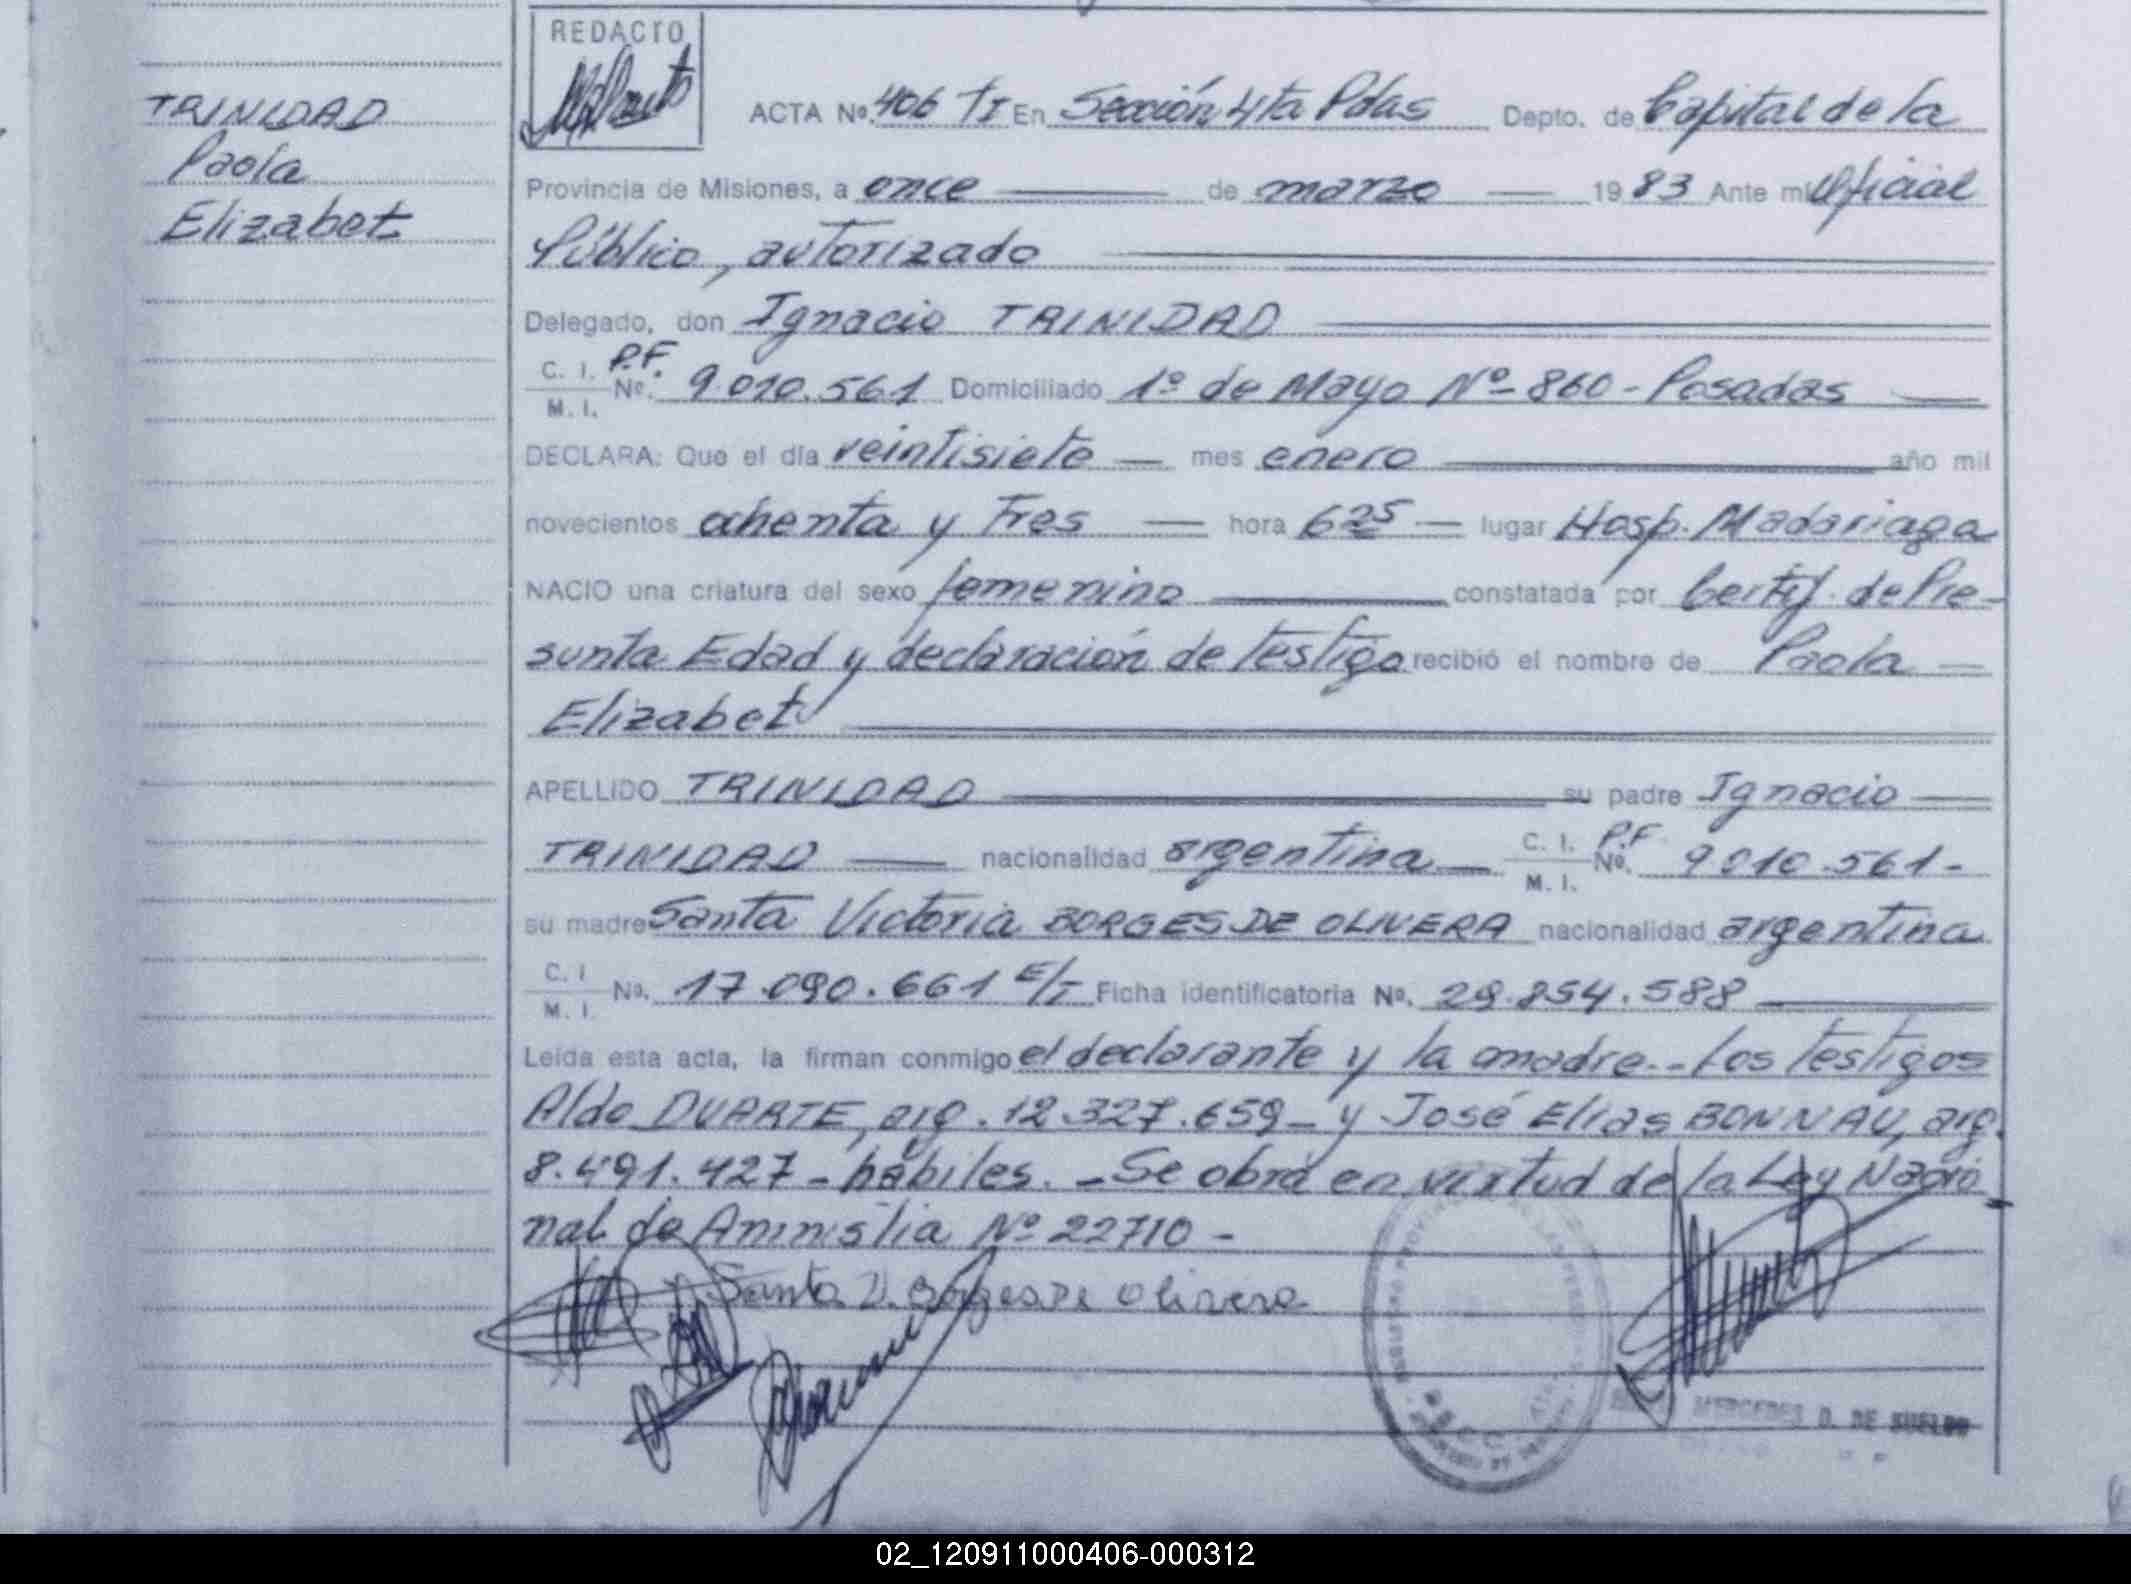 REDACTO
TRINIDAD
Paola
Elizabet
ACTA Nº 406 TI En Sección 4ta Pdas Depto. de Capital de la
Provincia de Misiones, a once de marzo 1983 Ante mi Oficial
Público, autorizado
Delegado, don Ignacio TRINIDAD
C. I. P.F.
M. I. Nº. 9.010.561 Domiciliado 1º de Mayo Nº 860 - Posadas
DECLARA: Que el día veintisiete mes enero año mil
novecientos ochenta y Tres hora 6 25 lugar Hosp. Madariaga
NACIO una criatura del sexo femenino constatada por Certif. de Pre-
sunta Edad y declaración de testigo recibió el nombre de Paola
Elizabet
APELLIDO TRINIDAD su padre Ignacio
TRINIDAD nacionalidad argentina C. I. M. I. P.F Nº. 9.010.561-
su madre Santa Victoria BORGES DE OLIVERA nacionalidad argentina
C. I M. I. Nº. 17.090.661 E/T Ficha identificatoria Nº. 29.854.588
Leída esta acta, la firman conmigo el declarante y la madre.-Los testigos
Aldo DUARTE, arg. 12.327.659- y José Elias BONNAU, arg.
8.491.427- hábiles. -Se obra en virtud de la Ley Nacio
nal de Amnistia Nº 22710 -
Santa V. Borges de Olivera
MERCEDES D. DE
02_120911000406-000312